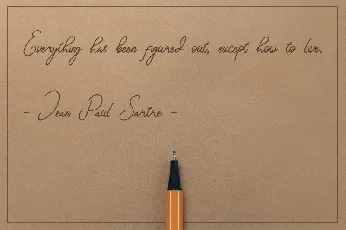 Everything has been figured out, except how to live.
- Jean Paul Sartre -